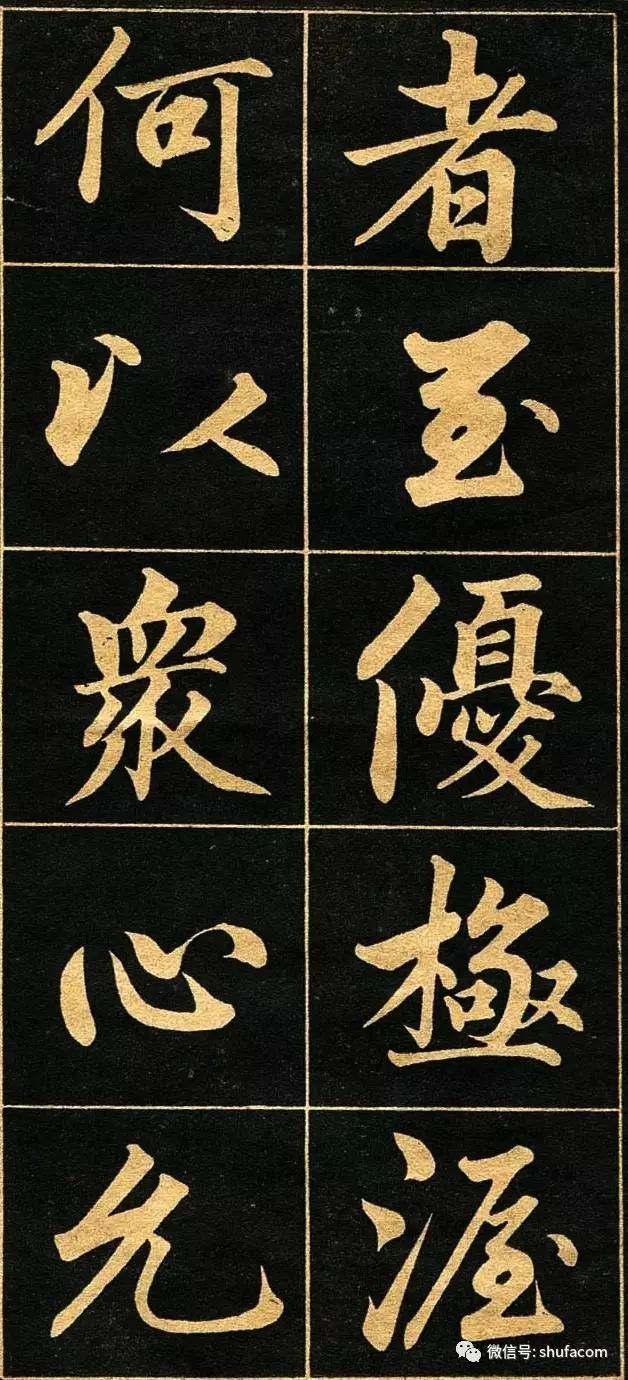 者至優極渥
何以眾心允
微信号: shufacom